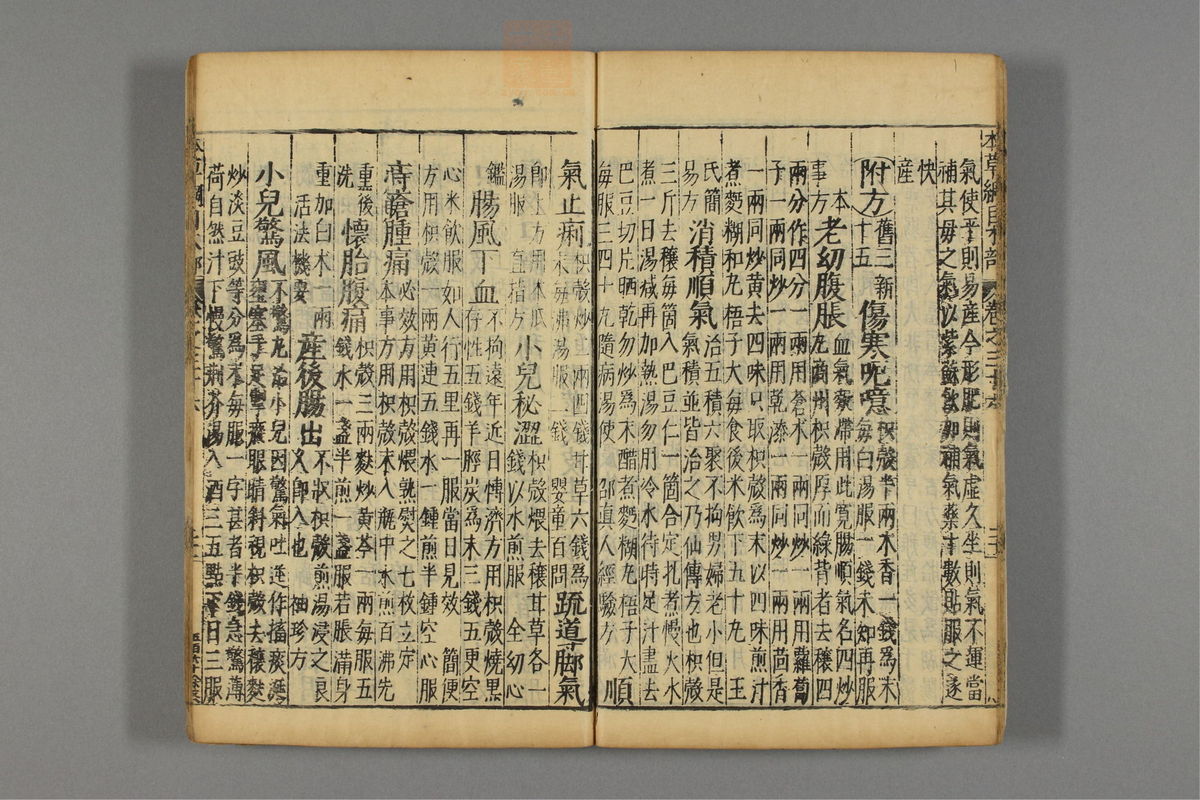 氣使平則易産今形肥則氣虛久坐則氣不運當
補其母之氣以紫蘇飲加補氣藥十數貼服之遂
快
産
附方舊三新十五傷寒呃噫枳殼半兩木香一錢爲末每白湯服一錢未知再服
本事方老幼腹脹血氣凝滯用此寛腸順氣名四炒丸商州枳殼厚而綠背者去穰四
兩分作四分一兩用蒼术一兩同炒一兩用蘿蔔
子一兩同炒一兩用乾漆一兩同炒一兩用茴香
一兩同炒黄去四味只取枳殼爲末以四味煎汁
煮麪糊和丸梧子大每食後米飲下五十丸王
氏簡易方消積順氣治五積六聚不拘男婦老小但是氣積並皆治之乃仙傳方也枳殼
三斤去穰每箇入巴豆仁一箇合定扎煮慢火水
煮一日湯减再加熱湯勿用冷水待時足汁盡去
巴豆切片晒乾勿炒爲末醋煮麪糊丸梧子大
每服三四十丸隨病湯使邵真人經驗方順
氣止痢枳殼炒二兩四錢甘草六錢爲末每沸湯服二錢嬰童百問疏道脚氣
即上方用木瓜湯服直指方小兒秘澀枳殼煨去穰甘草各一錢以水煎服全幼心
鑑腸風下血不拘遠年近日博濟方用枳殼燒黒存性五錢羊脛炭爲末三錢五更空
心米飲服如人行五里再一服當日見效簡便
方用枳殼一兩黄連五錢水一鍾煎半鍾空心服
痔瘡腫痛必效方用枳殼煨熟熨之七枚立定本事方用枳殼末入瓶中水煎百沸先
熏後洗懷胎腹痛枳殼三兩麩炒黄芩一兩每服五錢水一盞半煎一盞服若脹滿身
重加白术一兩活法機要産後腸出不收枳殼煎湯浸之良久即入也袖珍方
小兒驚風不驚丸治小兒因驚氣吐逆作搐痰涎壅塞手足掣瘲眼睛斜視枳殼去穰麩
炒淡豆豉等分爲末每服一字甚者半錢急驚薄
荷自然汁下慢驚荆芥湯入酒三五點下日三服